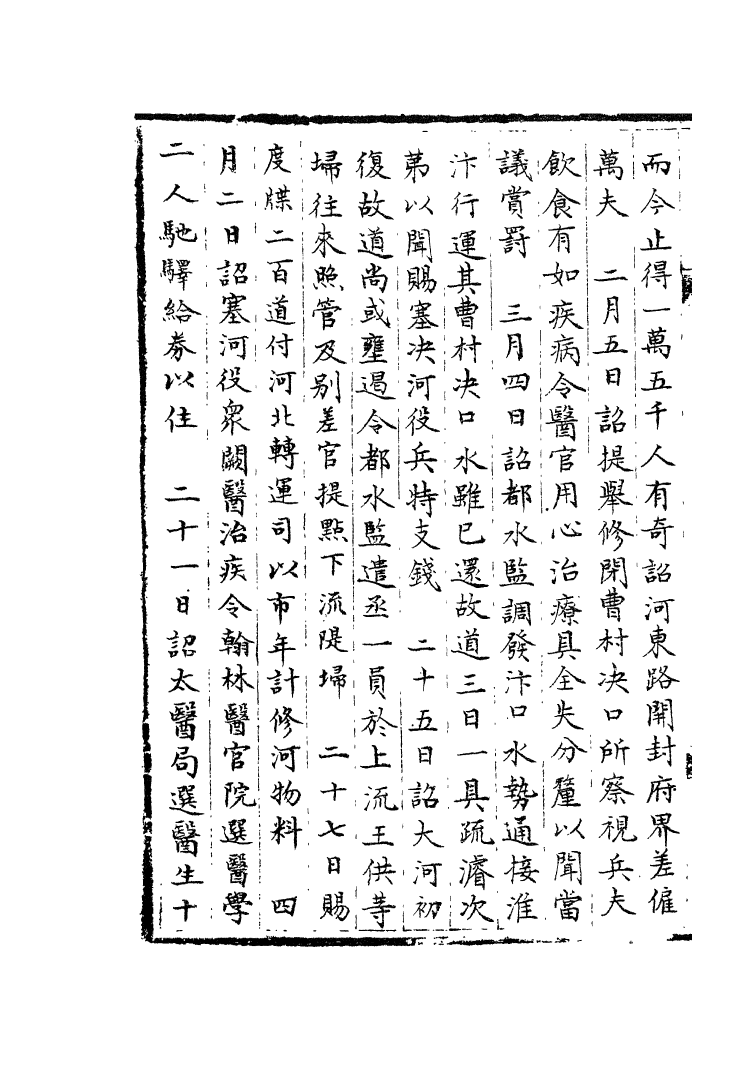 而今止得一萬五千人有奇詔河東路開封府界差僱
萬夫　二月五日詔提舉修閉曹村決口所察視兵夫
飲食有如疾病令醫官用心治療具全失分釐以聞當
議賞罰　三月四日詔都水監調發汴口水勢通接淮
汴行運其曹村决口水雖已還故道三日一具疏濬次
第以聞賜塞决河役兵特支錢　二十五日詔大河初
復故道尚或壅遏令都水監遣丞一員於上流王供等
埽往來照管及别差官提點下流隄埽　二十七日賜
度牒二百道付河北轉運司以市年計修河物料　四
月二日詔塞河役衆闕醫治疾令翰林醫官院選醫學
二人馳驛給券以往　二十一日詔太醫局選醫生十